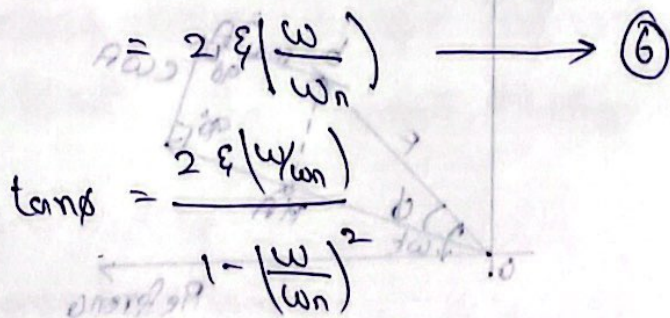 = 2 ξ(ω/ωn) ⟶ ⑥
tanφ = 2 ξ(ω/ωn) / 1 - (ω/ωn)²